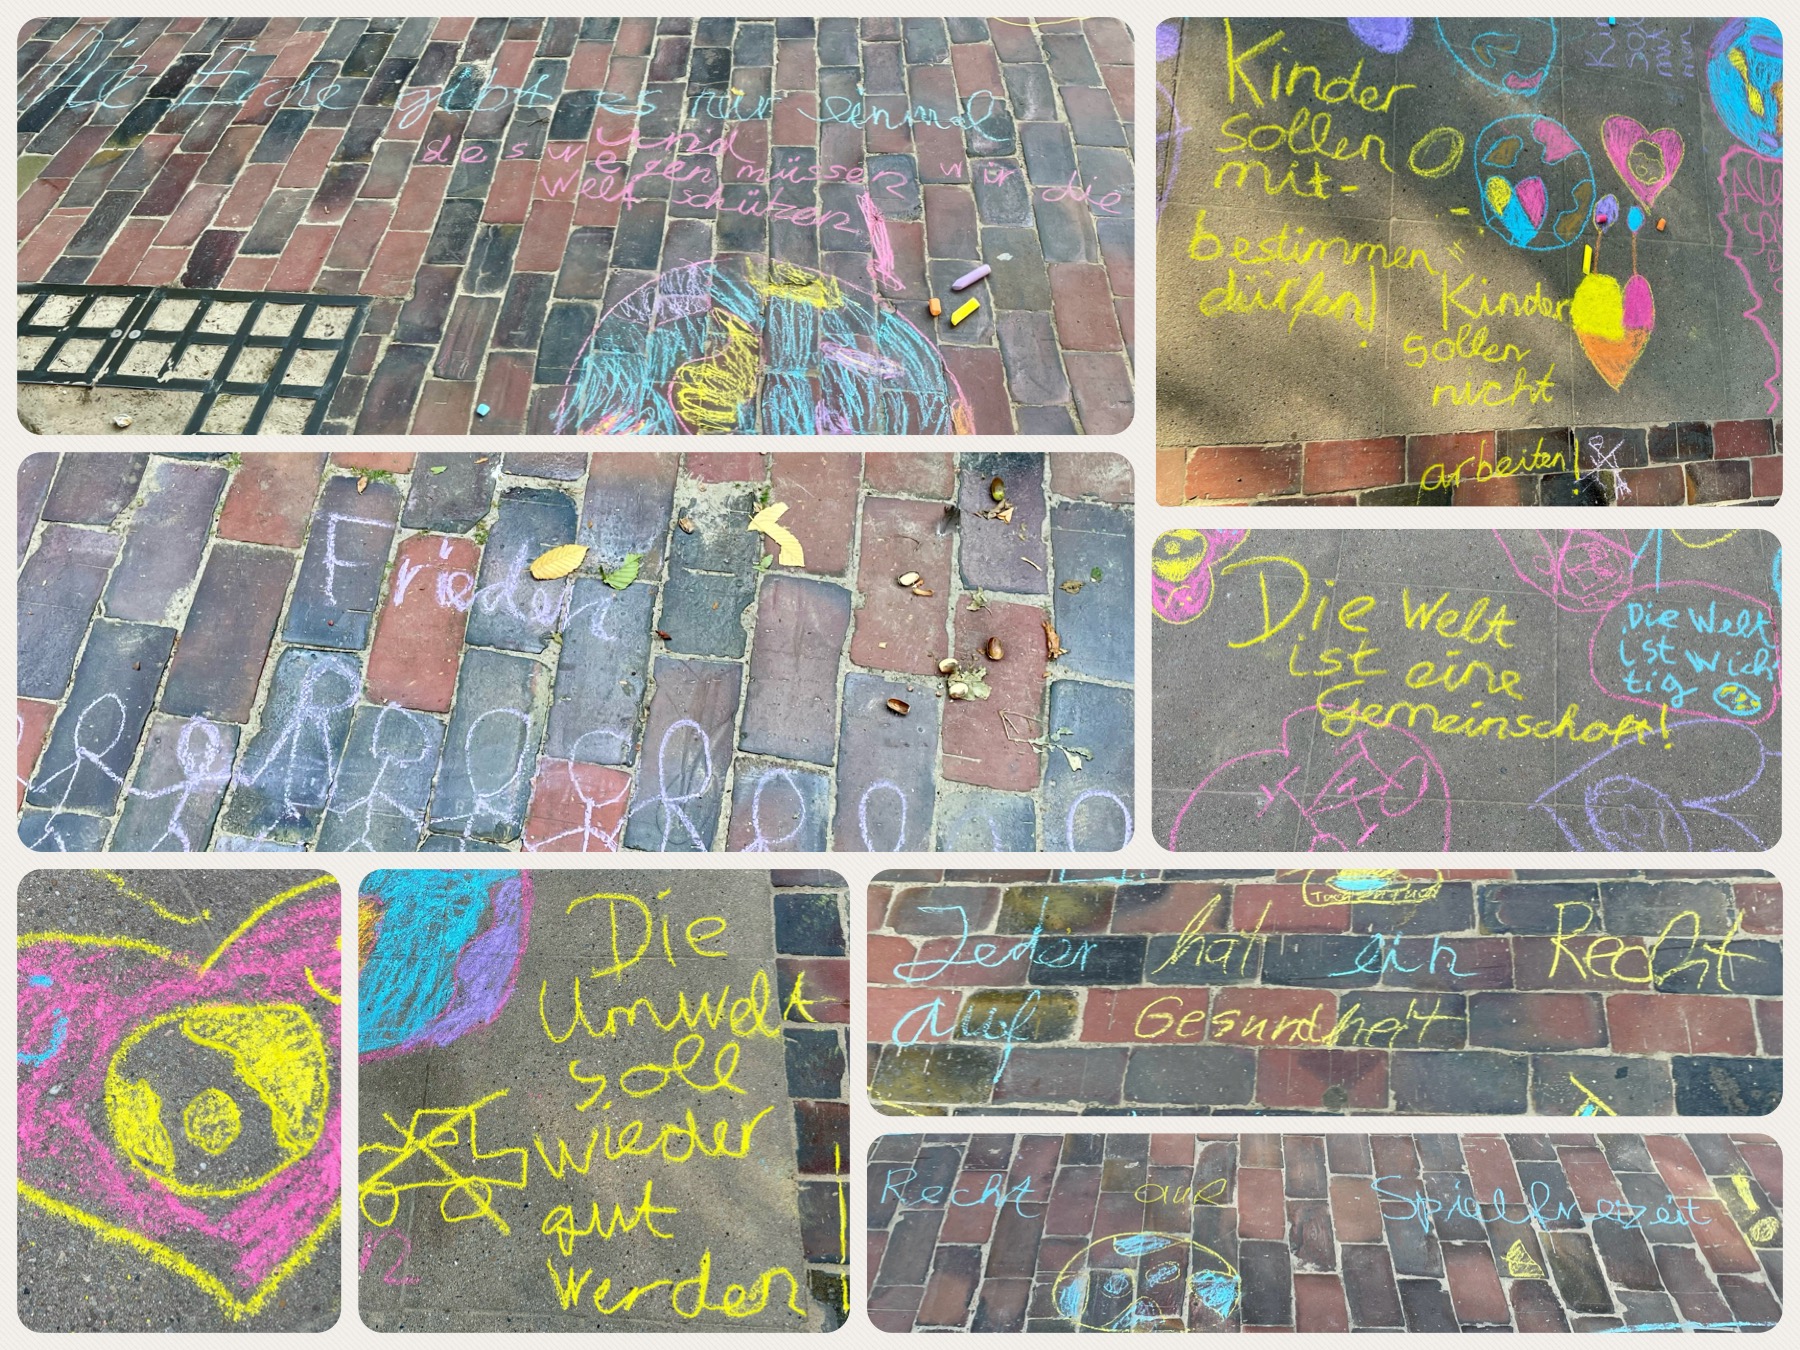 Die Erde gibt es nur einmal
und
deswegen müssen wir die
Welt schützen!
Kinder
sollen
mit-
bestimmen
dürfen!
Kinder
sollen
nicht
arbeiten!
Frieden
Die Welt
ist eine
Gemeinschaft!
Die Welt
ist wich
tig
Die
Umwelt
soll
wieder
gut
werden!
Jeder hat ein Recht
auf Gesundheit
Recht auf Spielfreizeit!